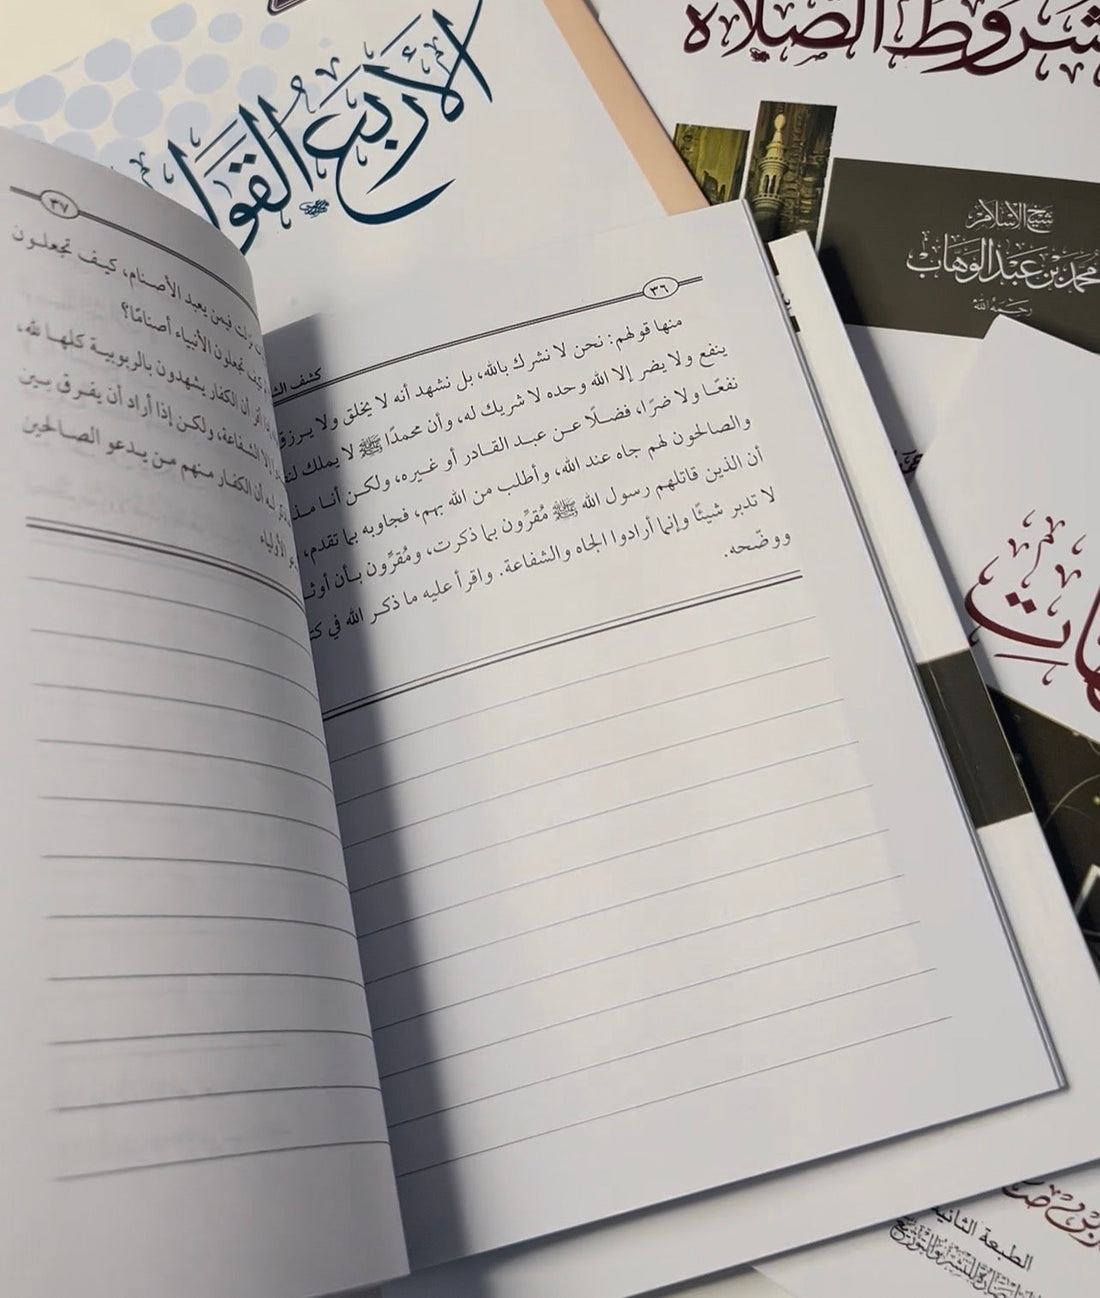 الأربع القوا
شروط الصلاة
شيخ الإسلام
محمد بن عبد الوهاب
رحمه الله
٣٦
كشف الش
منها قولهم: نحن لا نشرك بالله، بل نشهد أنه لا يخلق ولا يرزق
ينفع ولا يضر إلا الله وحده لا شريك له، وأن محمدًا ﷺ لا يملك لنف
نفعًا ولا ضرًا، فضلًا عن عبد القادر أو غيره، ولكن أنا مذ
والصالحون لهم جاه عند الله، وأطلب من الله بهم، فجاوبه بما تقدم،
أن الذين قاتلهم رسول الله ﷺ مُقرِّون بما ذكرت، ومُقرِّون بأن أوث
لا تدبر شيئًا وإنما أرادوا الجاه والشفاعة. واقرأ عليه ما ذكر الله في كت
ووضّحه.
٣٧
نزلت فيمن يعبد الأصنام، كيف تجعلون
كيف تجعلون الأنبياء أصنامًا؟
أقر أن الكفار يشهدون بالربوبية كلها لله،
إلا الشفاعة، ولكن إذا أراد أن يفرق بين
له أن الكفار منهم من يدعو الصالحين
الأولياء
هات
الطبعة الثانية